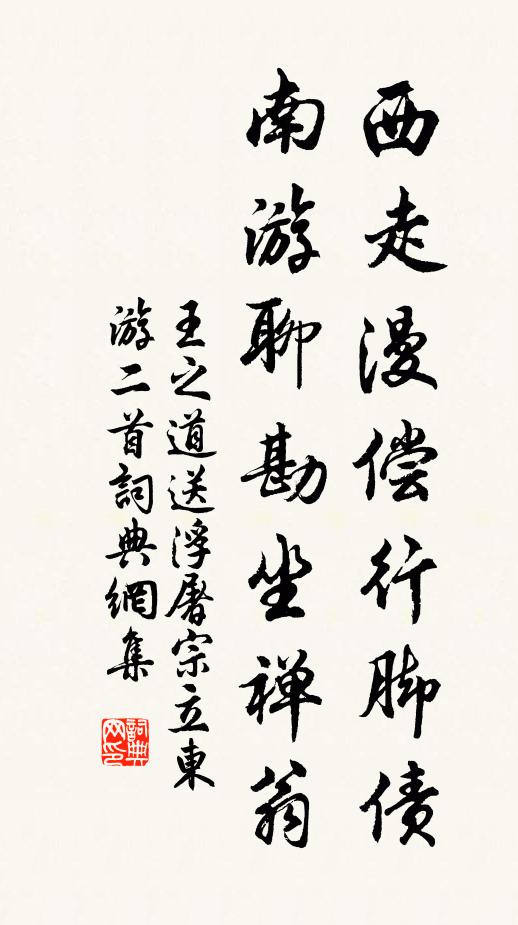 西走漫偿行脚债
南游聊勘坐禅翁
王之道送浮屠宗立東
游二首詞典網集
詞典网印